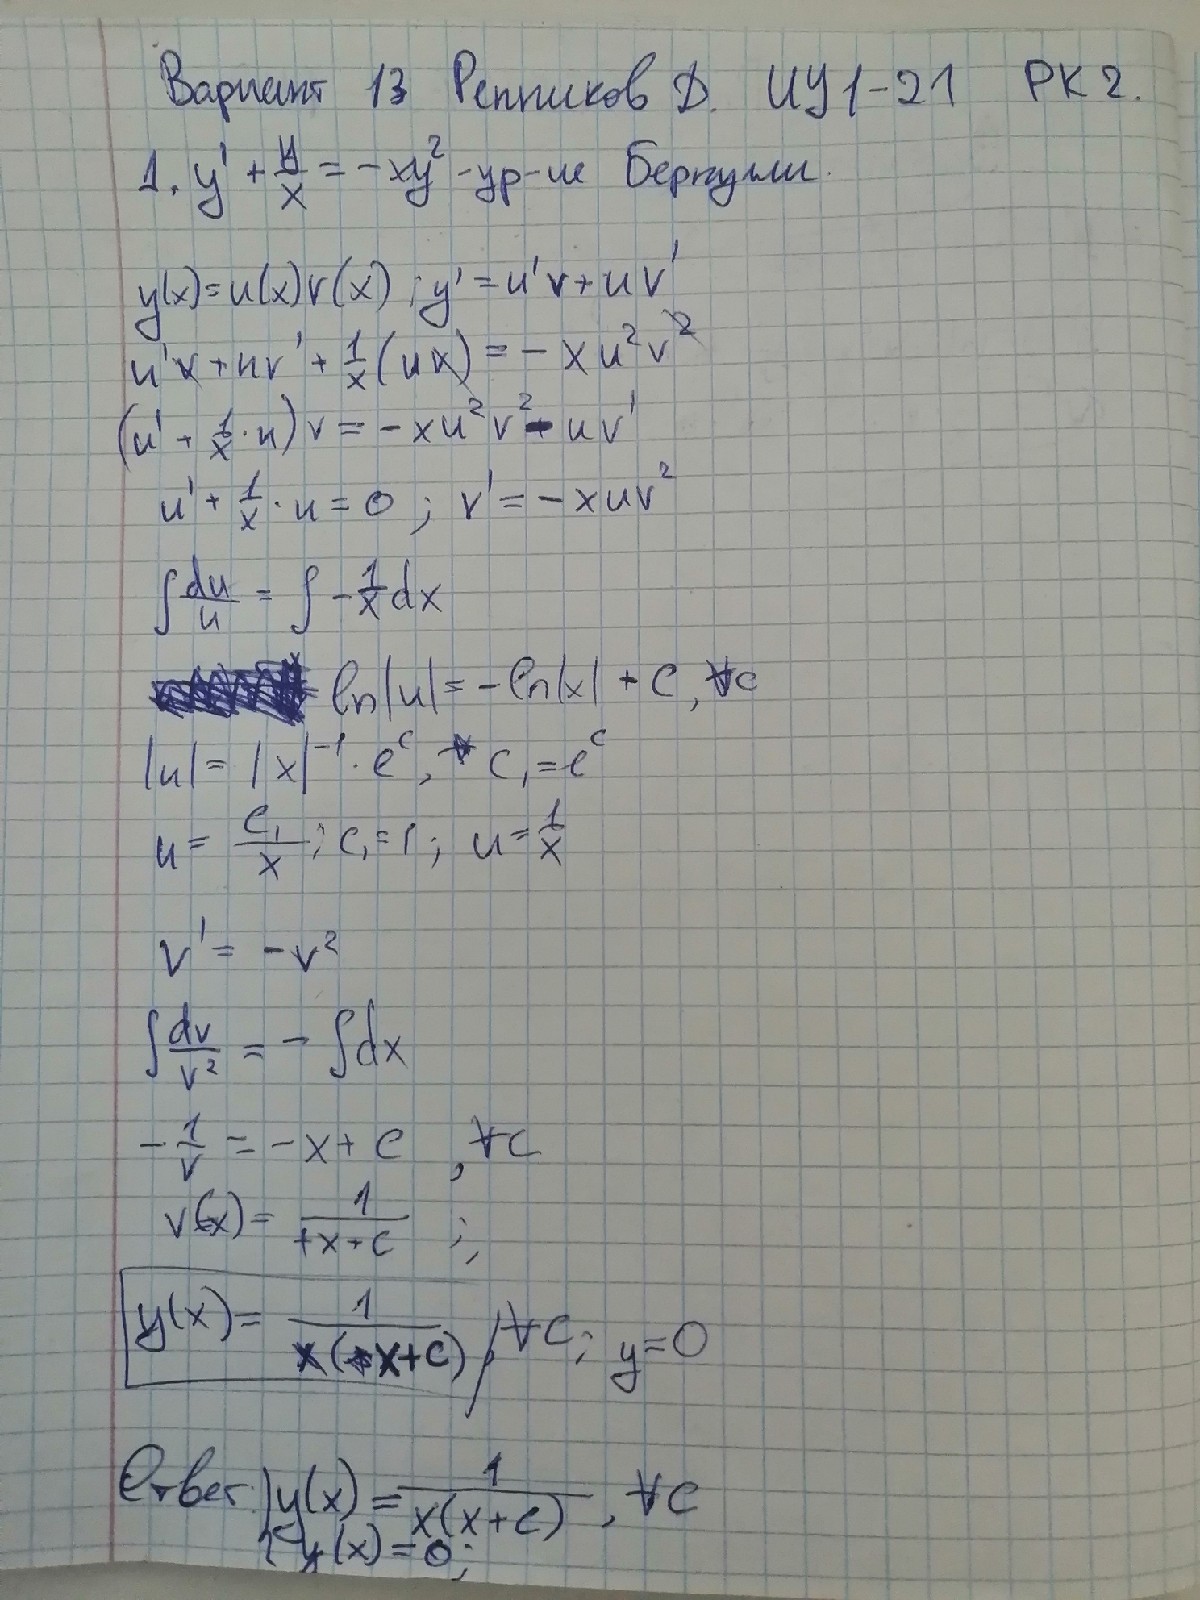 Вариант 13 Репников Д. ИУ1-21 РК 2.
1. y' + y/x = -xy² - ур-ие Бернулли.
y(x) = u(x)v(x); y' = u'v + uv'
u'v + uv' + 1/x (uv) = -xu²v²
(u' + 1/x · u)v = -xu²v² - uv'
u' + 1/x · u = 0; v' = -xuv²
∫ du/u = ∫ -1/x dx
ln|u| = -ln|x| + C, ∀C
|u| = |x|⁻¹ · e^C, C₁ = e^C
u = C₁/x; C₁ = 1; u = 1/x
v' = -v²
∫ dv/v² = -∫dx
-1/v = -x + C, ∀C
v(x) = 1/(+x+C);
y(x) = 1/(x(+x+C)), ∀C; y=0
Ответ: { y(x) = 1/(x(x+C)), ∀C
y(x) = 0;